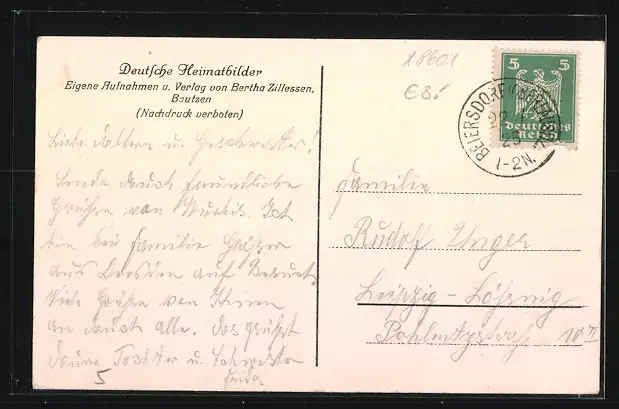 Deutsche Heimatbilder
Eigene Aufnahmen u. Verlag von Bertha Zillessen,
Bautzen
(Nachdruck verboten)
x8601
€8.-
5 5
Deutsches
Reich
BEIERSDORF
25
1-2N.
Liebe Eltern u. Geschwister!
Sende Euch freundliche
Grüße von
bin bei Familie
aus Dresden auf Besuch.
Viele Grüße von Ihnen
an Euch alle. Es grüßt
Eure Tochter u. Schwester
5 Frida
Familie
Rudolf Unger
Leipzig - Lößnig
10 II